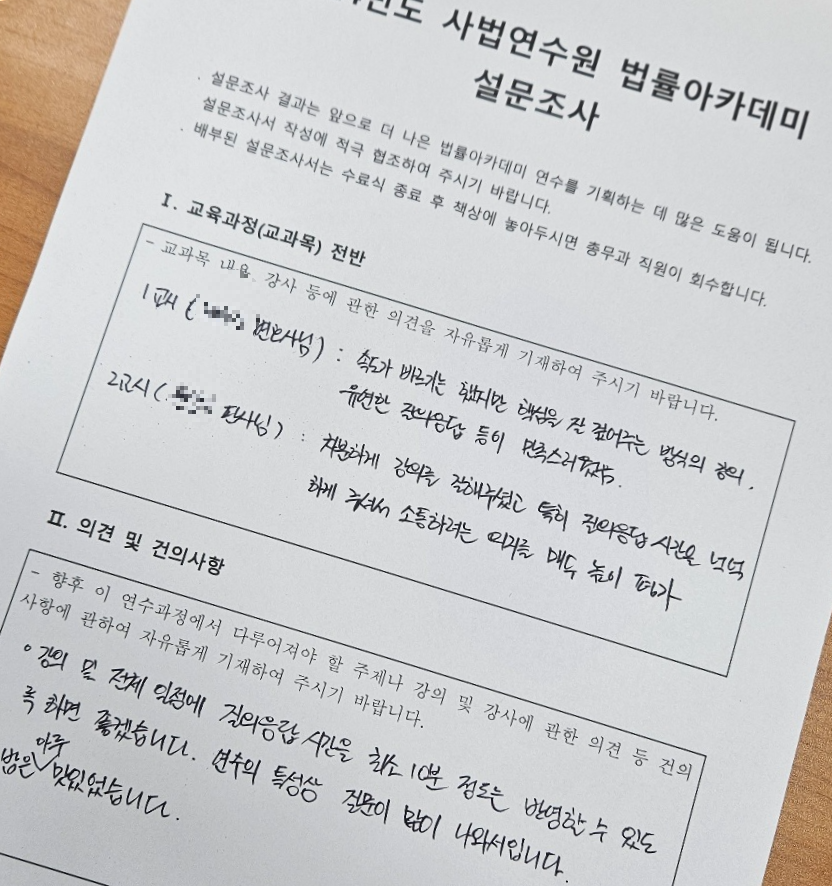 사법연수원 법률아카데미
설문조사
. 설문조사 결과는 앞으로 더 나은 법률아카데미 연수를 기획하는 데 많은 도움이 됩니다.
설문조사서 작성에 적극 협조하여 주시기 바랍니다.
. 배부된 설문조사서는 수료식 종료 후 책상에 놓아두시면 총무과 직원이 회수합니다.
I. 교육과정(교과목) 전반
- 교과목 내용, 강사 등에 관한 의견을 자유롭게 기재하여 주시기 바랍니다.
1교시 ( 변호사님) : 속도가 빠르기는 했지만 핵심을 잘 짚어주는 방식의 강의,
유연한 질의응답 등이 만족스러웠음.
2교시 ( 판사님) : 차분하게 강의를 잘해주셨고 특히 질의응답 시간을 넉넉
하게 주셔서 소통하려는 의지를 매우 높이 평가
II. 의견 및 건의사항
- 향후 이 연수과정에서 다루어져야 할 주제나 강의 및 강사에 관한 의견 등 건의
사항에 관하여 자유롭게 기재하여 주시기 바랍니다.
° 강의 및 전체 일정에 질의응답 시간을 최소 10분 정도는 반영할 수 있도
록 하면 좋겠습니다. 연수의 특성상 질문이 많이 나와서입니다.
밥은 아주 맛있었습니다.